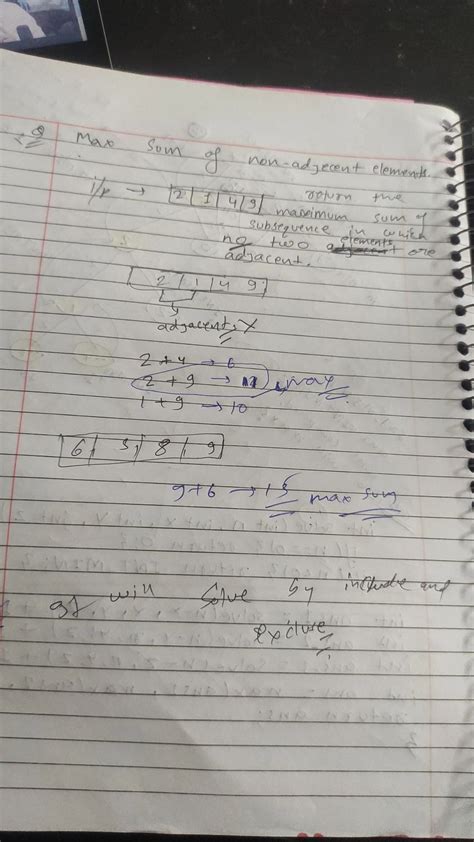 Q Max sum of non-adjecent elements.
i/p → [2|1|4|9] return the
maximum sum of
subsequence in which
no two elements are
adjacent.
2|1|4|9
adjacent, X
2+4 → 6
2+9 → 11, max
1+9 → 10
6|5|8|9
9+6 → 15 max sum
It will solve by include and
exclude